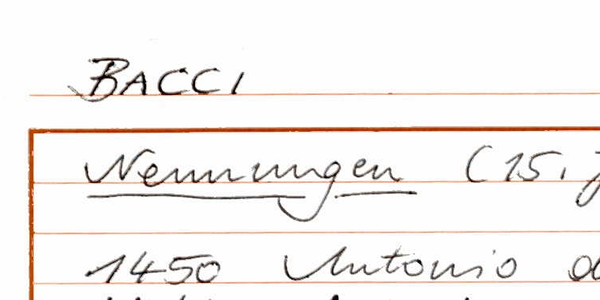 BACCI
Nennungen (15.
1450 Antonio